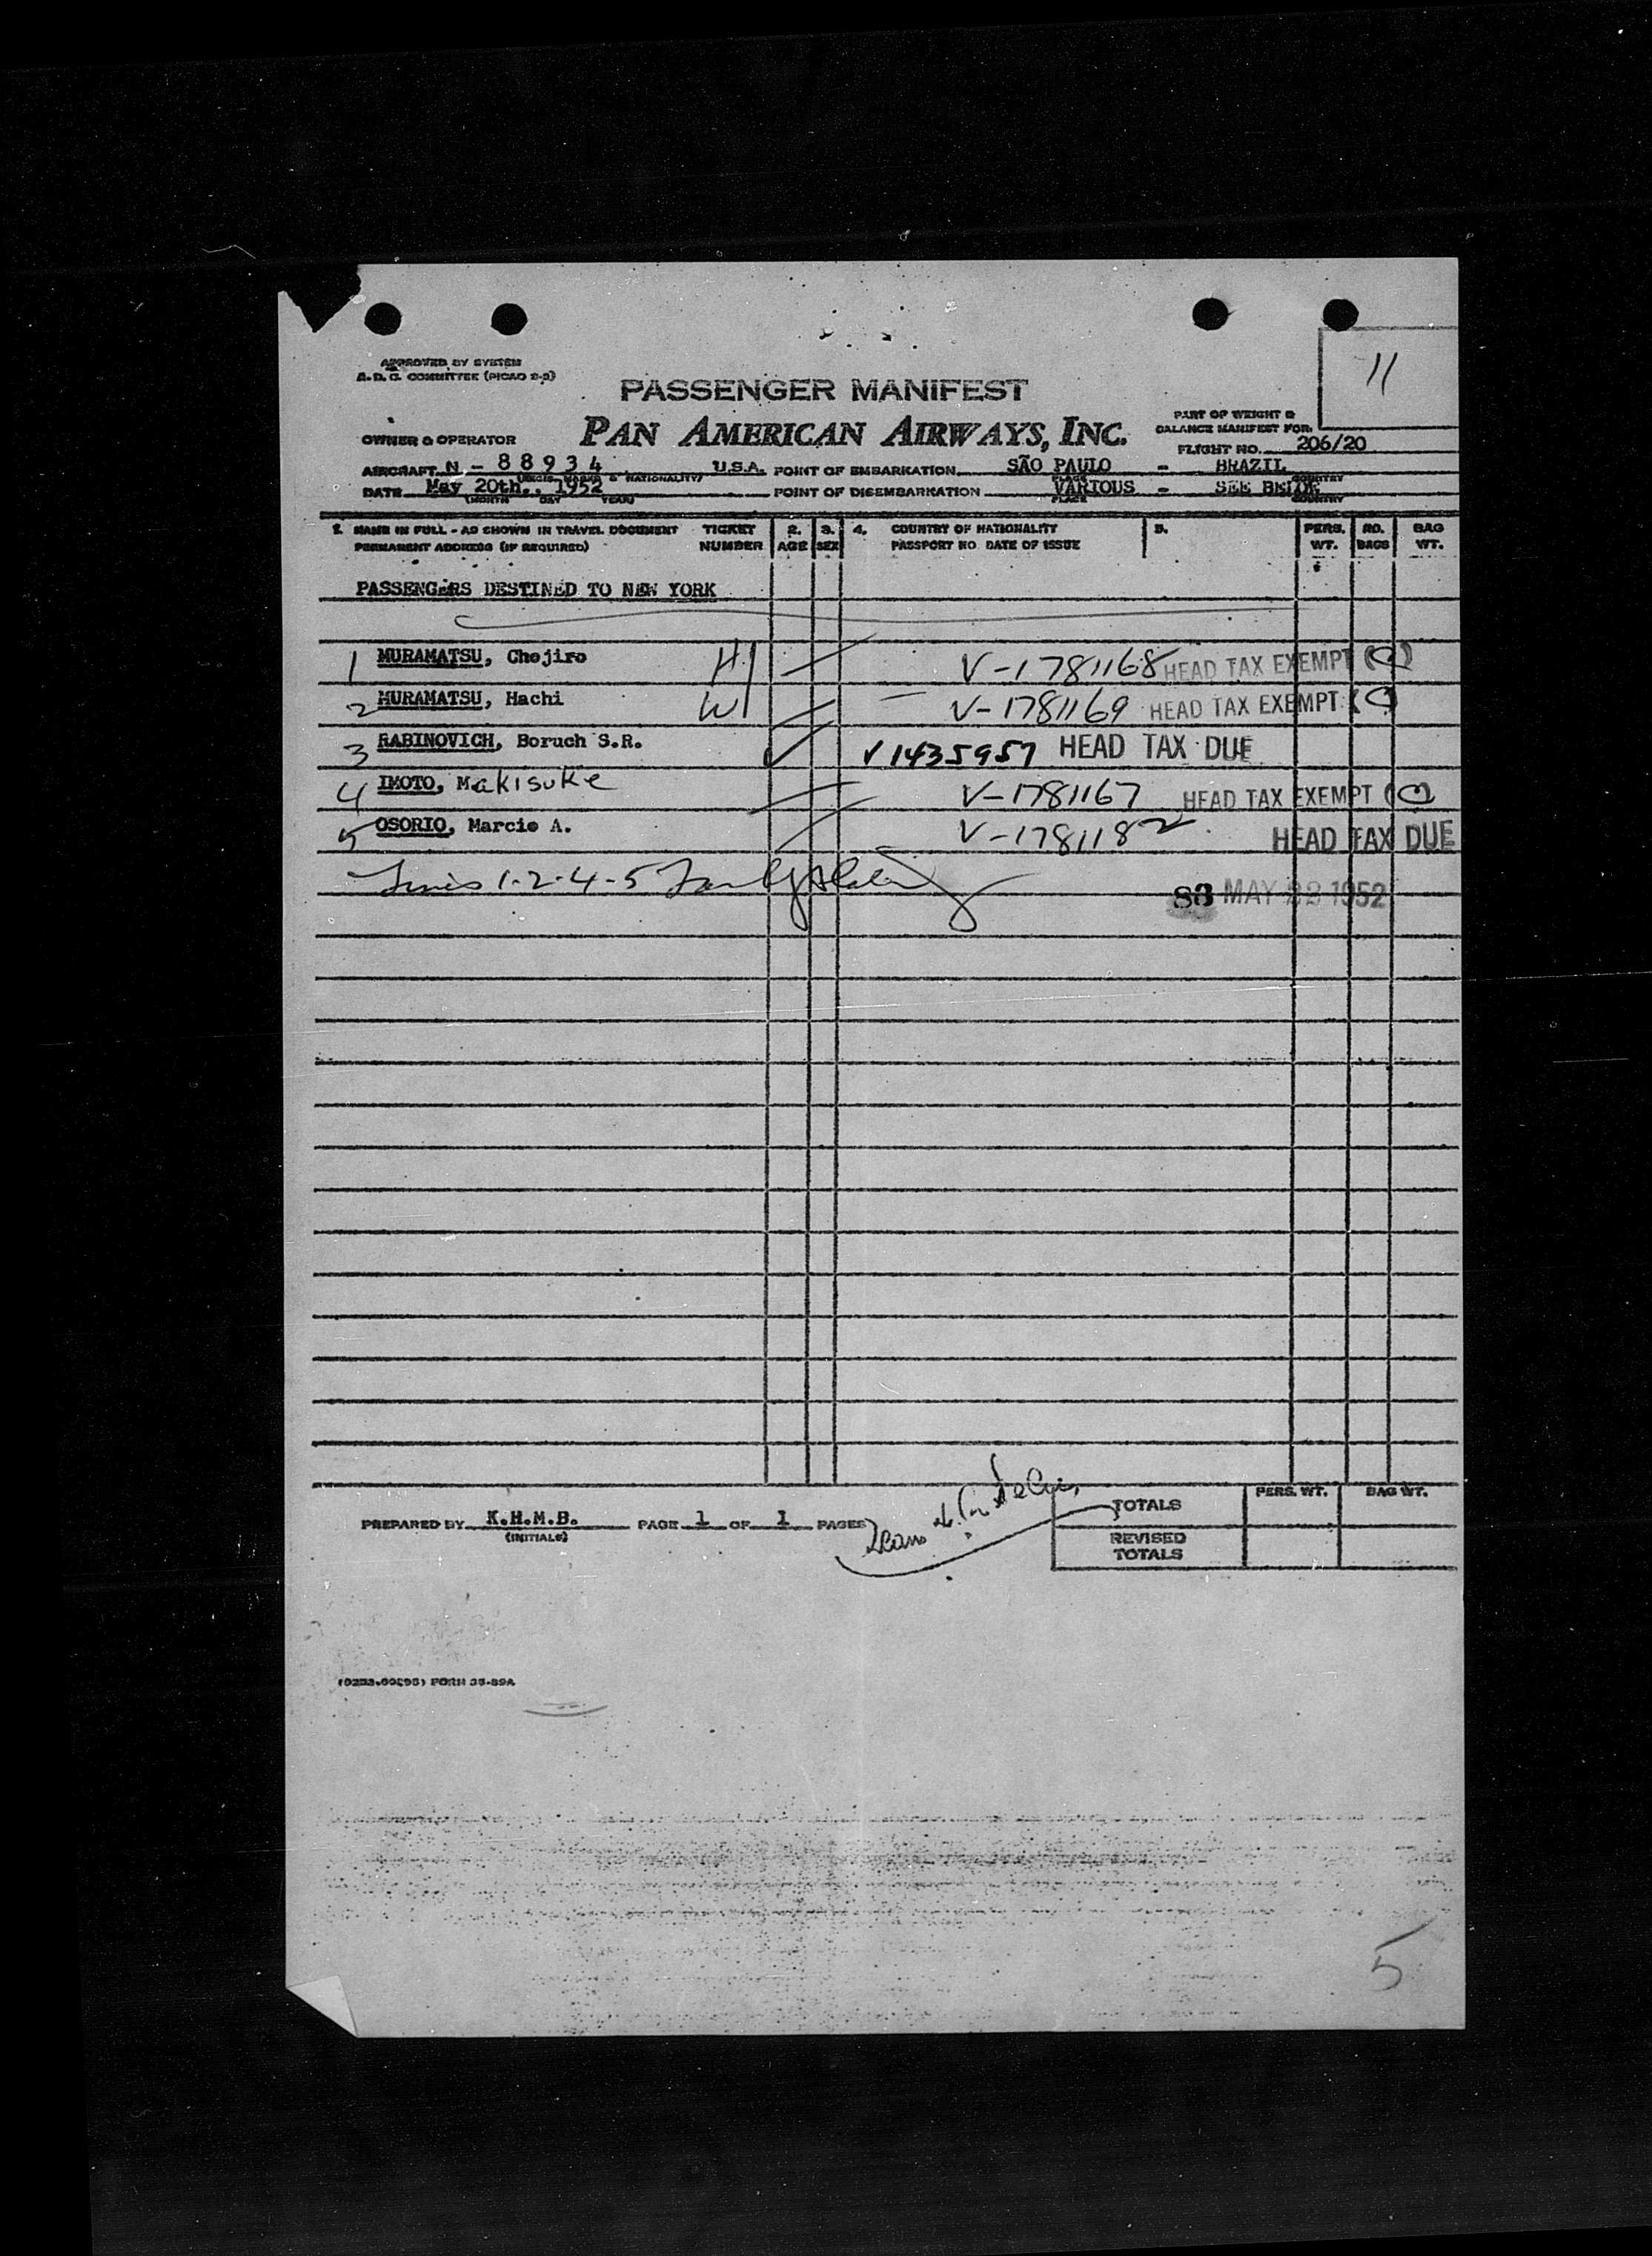 11
APPROVED BY SYSTEM
A.D.C. COMMITTEE (PICAO 2-2)
PASSENGER MANIFEST
PART OF WEIGHT &
BALANCE MANIFEST FOR:
OWNER & OPERATOR
PAN AMERICAN AIRWAYS, INC.
FLIGHT NO. 206/20
AIRCRAFT N - 88934 U.S.A. POINT OF EMBARKATION SÃO PAULO - BRAZIL
(REGIS. MARKS & NATIONALITY) PLACE COUNTRY
DATE May 20th., 1952 POINT OF DISEMBARKATION VARIOUS - SEE BELOW
(MONTH DAY YEAR) PLACE COUNTRY
1. NAME IN FULL - AS SHOWN IN TRAVEL DOCUMENT TICKET 2. 3. 4. COUNTRY OF NATIONALITY 5. PERS. NO. BAG
PERMANENT ADDRESS (IF REQUIRED) NUMBER AGE SEX PASSPORT NO. DATE OF ISSUE WT. BAGS WT.
PASSENGERS DESTINED TO NEW YORK
1 MURAMATSU, Chojiro H V-1781168 HEAD TAX EXEMPT
2 MURAMATSU, Hachi W V-1781169 HEAD TAX EXEMPT
3 RABINOVICH, Boruch S.R. V1435957 HEAD TAX DUE
4 IMOTO, Makisuke V-1781167 HEAD TAX EXEMPT
5 OSORIO, Marcio A. V-1781182 HEAD TAX DUE
Lines 1-2-4-5
83 MAY 22 1952
PREPARED BY K.H.M.B. PAGE 1 OF 1 PAGES
(INITIALS)
TOTALS PERS. WT. BAG WT.
REVISED
TOTALS
FORM 35-89A
5